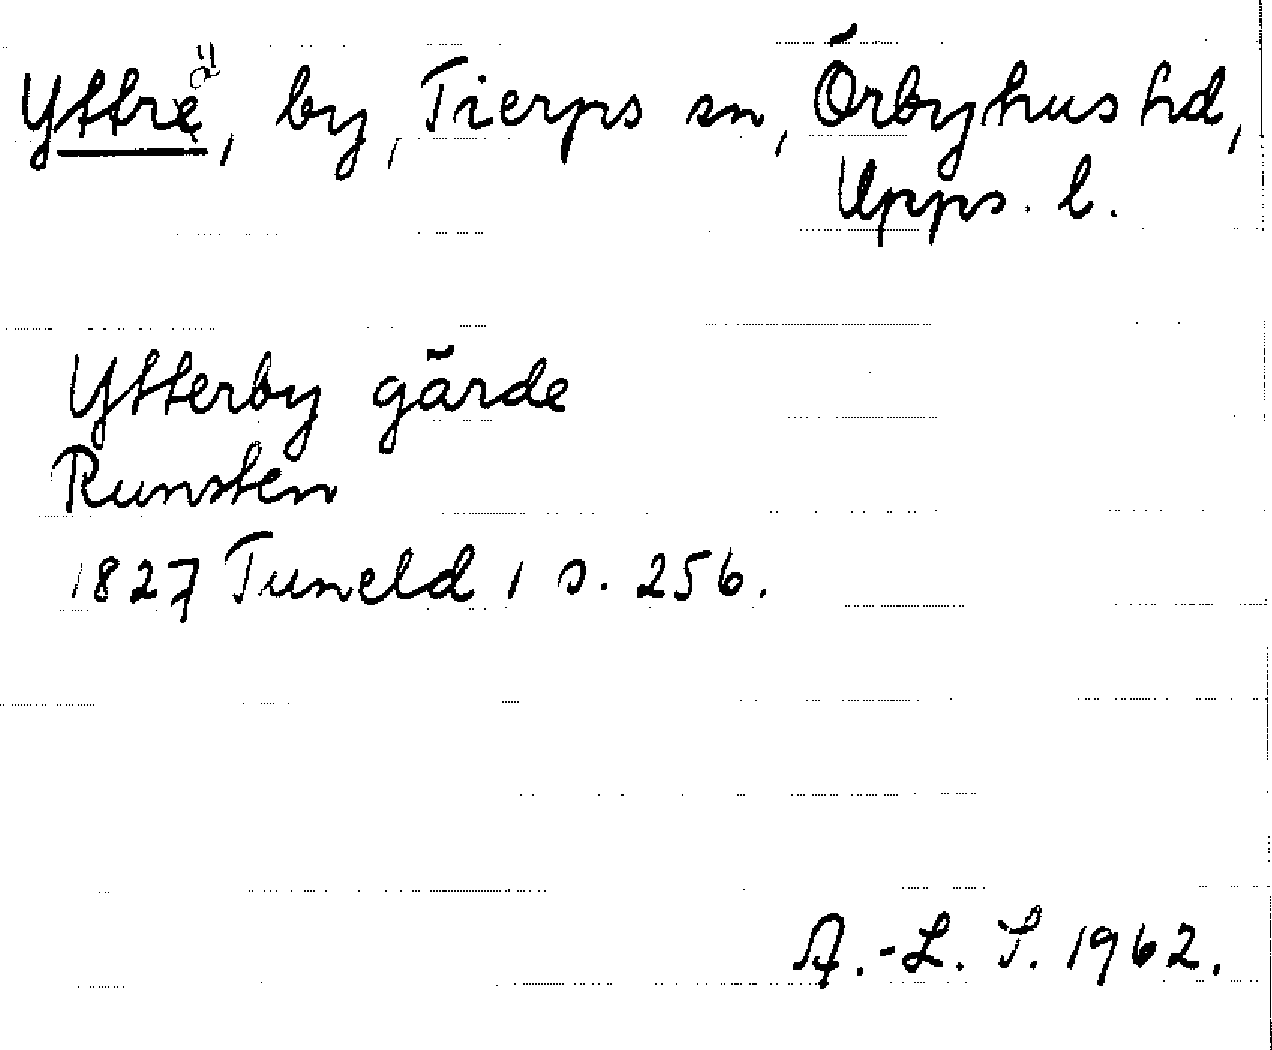 Ytträ, by, Tierps sn, Örbyhus hd,
Upps. l.
Ytterby gärde
Runsten
1827 Tuneld 1 s. 256.
A.-L. S. 1962.